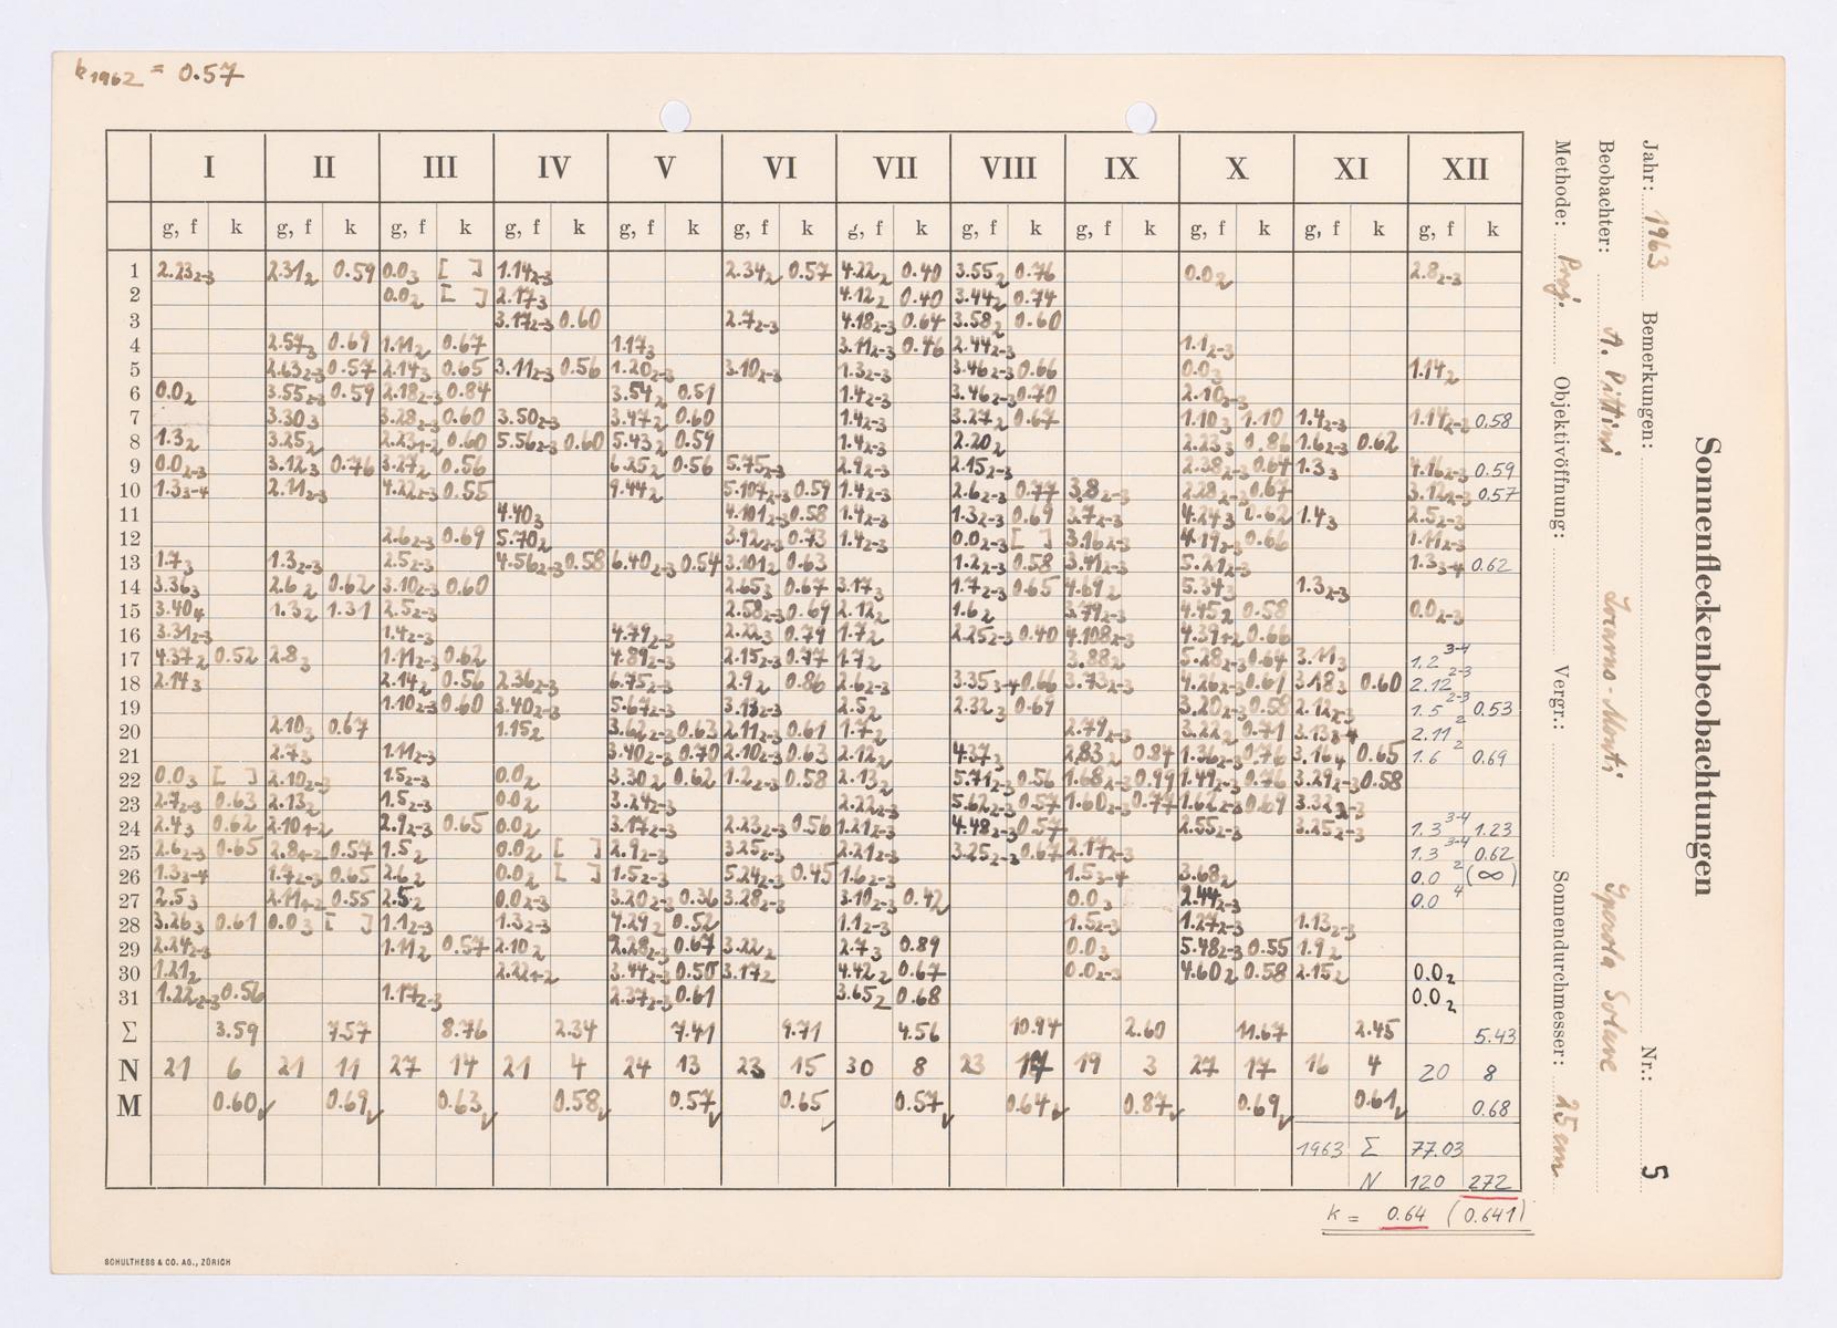 k1962 = 0.57
I II III IV V VI VII VIII IX X XI XII
g, f k g, f k g, f k g, f k g, f k g, f k g, f k g, f k g, f k g, f k g, f k g, f k
1 2.23₂₋₃ 2.31₂ 0.59 0.0₃ [ ] 1.14₂₋₃ 2.34₂ 0.57 4.22₂ 0.40 3.55₂ 0.76 0.0₂ 2.8₂₋₃
2 0.0₂ [ ] 2.17₃ 4.12₂ 0.40 3.44₂ 0.74
3 3.17₂₋₃ 0.60 2.7₂₋₃ 4.18₂₋₃ 0.64 3.58₂ 0.60
4 2.57₃ 0.69 1.11₂ 0.67 1.17₃ 3.11₂₋₃ 0.46 2.44₂₋₃ 1.1₂₋₃
5 2.63₂₋₃ 0.57 2.14₃ 0.65 3.11₂₋₃ 0.56 1.20₂₋₃ 3.10₂₋₃ 1.3₂₋₃ 3.46₂₋₃ 0.66 0.0₃ 1.14₂
6 0.0₂ 3.55₂₋₃ 0.59 2.18₂₋₃ 0.84 3.54₂ 0.51 1.4₂₋₃ 3.46₂₋₃ 0.70 2.10₂₋₃
7 3.30₃ 3.28₂₋₃ 0.60 3.50₂₋₃ 3.47₂ 0.60 1.4₂₋₃ 3.27₂ 0.67 1.10₃ 1.10 1.4₂₋₃ 1.14₂₋₃ 0.58
8 1.3₂ 3.25₂ 2.23₁₋₂ 0.60 5.56₂₋₃ 0.60 5.43₂ 0.59 1.4₂₋₃ 2.20₂ 2.23₃ 0.86 1.6₂₋₃ 0.62
9 0.0₂₋₃ 3.12₃ 0.76 3.27₂ 0.56 6.25₂ 0.56 5.75₂₋₃ 2.9₂₋₃ 2.15₂₋₃ 2.38₂₋₃ 0.64 1.3₃ 4.16₂₋₃ 0.59
10 1.3₃₋₄ 2.11₂₋₃ 4.22₂₋₃ 0.55 9.44₂ 5.107₂₋₃ 0.59 1.4₂₋₃ 2.6₂₋₃ 0.77 3.8₂₋₃ 2.28₂₋₃ 0.67 3.12₂₋₃ 0.57
11 4.40₃ 4.101₂₋₃ 0.58 1.4₂₋₃ 1.3₂₋₃ 0.69 3.7₂₋₃ 4.24₃ 0.62 1.4₃ 2.5₂₋₃
12 2.6₂₋₃ 0.69 5.70₂ 3.92₂₋₃ 0.73 1.4₂₋₃ 0.0₂₋₃ [ ] 3.16₂₋₃ 4.19₂₋₃ 0.66 1.11₂₋₃
13 1.7₃ 1.3₂₋₃ 2.5₂₋₃ 4.56₂₋₃ 0.58 6.40₂₋₃ 0.54 3.101₂ 0.63 1.2₂₋₃ 0.58 3.41₂₋₃ 5.21₂₋₃ 1.3₃₋₄ 0.62
14 3.36₃ 2.6₂ 0.62 3.10₂₋₃ 0.60 2.65₃ 0.67 3.17₃ 1.7₂₋₃ 0.65 4.69₂ 5.34₃ 1.3₂₋₃
15 3.40₄ 1.3₂ 1.31 2.5₂₋₃ 2.58₂₋₃ 0.69 2.12₂ 1.6₂ 3.79₂₋₃ 4.45₂ 0.58 0.0₂₋₃
16 3.31₂₋₃ 1.4₂₋₃ 4.79₂₋₃ 2.22₃ 0.79 1.7₂ 2.25₂₋₃ 0.40 4.108₂₋₃ 4.39₁₋₂ 0.66
17 4.37₂ 0.52 2.8₃ 1.11₂₋₃ 0.62 4.89₂₋₃ 2.15₂₋₃ 0.77 1.7₂ 3.88₂ 5.28₂₋₃ 0.64 3.11₃ 1.2³⁻⁴
18 2.14₃ 2.14₂ 0.56 2.36₂₋₃ 6.75₂₋₃ 2.9₂ 0.86 2.6₂₋₃ 3.35₃₋₄ 0.66 3.73₂₋₃ 4.26₂₋₃ 0.61 3.18₃ 0.60 2.12²⁻³
19 1.10₂₋₃ 0.60 3.40₂₋₃ 5.67₂₋₃ 3.13₂₋₃ 2.5₂ 2.32₃ 0.69 3.20₂₋₃ 0.58 2.12₂₋₃ 1.5²⁻³ 0.53
20 2.10₃ 0.67 1.15₂ 3.62₂₋₃ 0.63 2.11₂₋₃ 0.61 1.7₂ 2.79₂₋₃ 3.22₂ 0.71 3.13₃₋₄ 2.11²
21 2.7₃ 1.11₂₋₃ 3.40₂₋₃ 0.70 2.10₂₋₃ 0.63 2.12₂ 4.37₃ 2.83₂ 0.84 1.36₂₋₃ 0.76 3.16₄ 0.65 1.6² 0.69
22 0.0₃ [ ] 2.10₂₋₃ 1.5₂₋₃ 0.0₂ 3.30₂ 0.62 1.2₂₋₃ 0.58 2.13₂ 5.71₂₋₃ 0.56 1.68₂₋₃ 0.99 1.49₂₋₃ 0.76 3.29₂₋₃ 0.58
23 2.7₂₋₃ 0.63 2.13₂ 1.5₂₋₃ 0.0₂ 3.24₂₋₃ 2.22₂₋₃ 5.62₂₋₃ 0.57 1.60₂₋₃ 0.77 1.62₂₋₃ 0.69 3.32₂₋₃
24 2.4₃ 0.62 2.10₁₋₂ 2.9₂₋₃ 0.65 0.0₂ 3.17₂₋₃ 2.23₂₋₃ 0.56 1.21₂₋₃ 4.48₂₋₃ 0.57 2.55₂₋₃ 3.25₂₋₃ 1.3³⁻⁴ 1.23
25 2.6₂₋₃ 0.65 2.8₁₋₂ 0.57 1.5₂ 0.0₂ [ ] 2.9₂₋₃ 3.25₂₋₃ 2.21₂₋₃ 3.25₂₋₃ 0.67 2.17₂₋₃ 1.3³⁻⁴ 0.62
26 1.3₃₋₄ 1.7₂₋₃ 0.65 2.6₂ 0.0₂ [ ] 1.5₂₋₃ 5.24₂₋₃ 0.45 1.6₂₋₃ 1.5₃₋₄ 3.68₂ 0.0² (∞)
27 2.5₃ 2.11₁₋₂ 0.55 2.5₂ 0.0₂₋₃ 3.20₂₋₃ 0.36 3.28₂₋₃ 3.10₂₋₃ 0.42 0.0₃ 2.44₂₋₃ 0.0⁴
28 3.26₃ 0.61 0.0₃ [ ] 1.1₂₋₃ 1.3₂₋₃ 4.29₂ 0.52 1.1₂₋₃ 1.5₂₋₃ 1.27₂₋₃ 1.13₂₋₃
29 2.24₂₋₃ 1.11₂ 0.57 2.10₂ 2.28₂₋₃ 0.67 3.22₂ 2.7₃ 0.89 0.0₃ 5.48₂₋₃ 0.55 1.9₂
30 1.21₂ 2.22₁₋₂ 3.44₂₋₃ 0.50 3.17₂ 4.42₂ 0.67 0.0₂₋₃ 4.60₂ 0.58 2.15₂ 0.0₂
31 1.22₂₋₃ 0.56 1.17₂₋₃ 2.37₂₋₃ 0.61 3.65₂ 0.68 0.0₂
Σ 3.59 7.57 8.76 2.34 7.41 9.71 4.56 10.94 2.60 11.67 2.45 5.43
N 21 6 21 11 27 14 21 4 24 13 23 15 30 8 23 17 19 3 27 17 16 4 20 8
M 0.60✓ 0.69✓ 0.63✓ 0.58✓ 0.57✓ 0.65✓ 0.57✓ 0.64✓ 0.87✓ 0.69✓ 0.61✓ 0.68
1963 Σ 77.03
N 120 272
k = 0.64 (0.641)
SCHULTHESS & CO. AG., ZÜRICH
Sonnenfleckenbeobachtungen
Jahr: 1963 Bemerkungen: Nr.: 5
Beobachter: A. Pittini Locarno-Monti Specola Solare
Methode: Proj. Objektivöffnung: Vergr.: Sonnendurchmesser: 25 cm